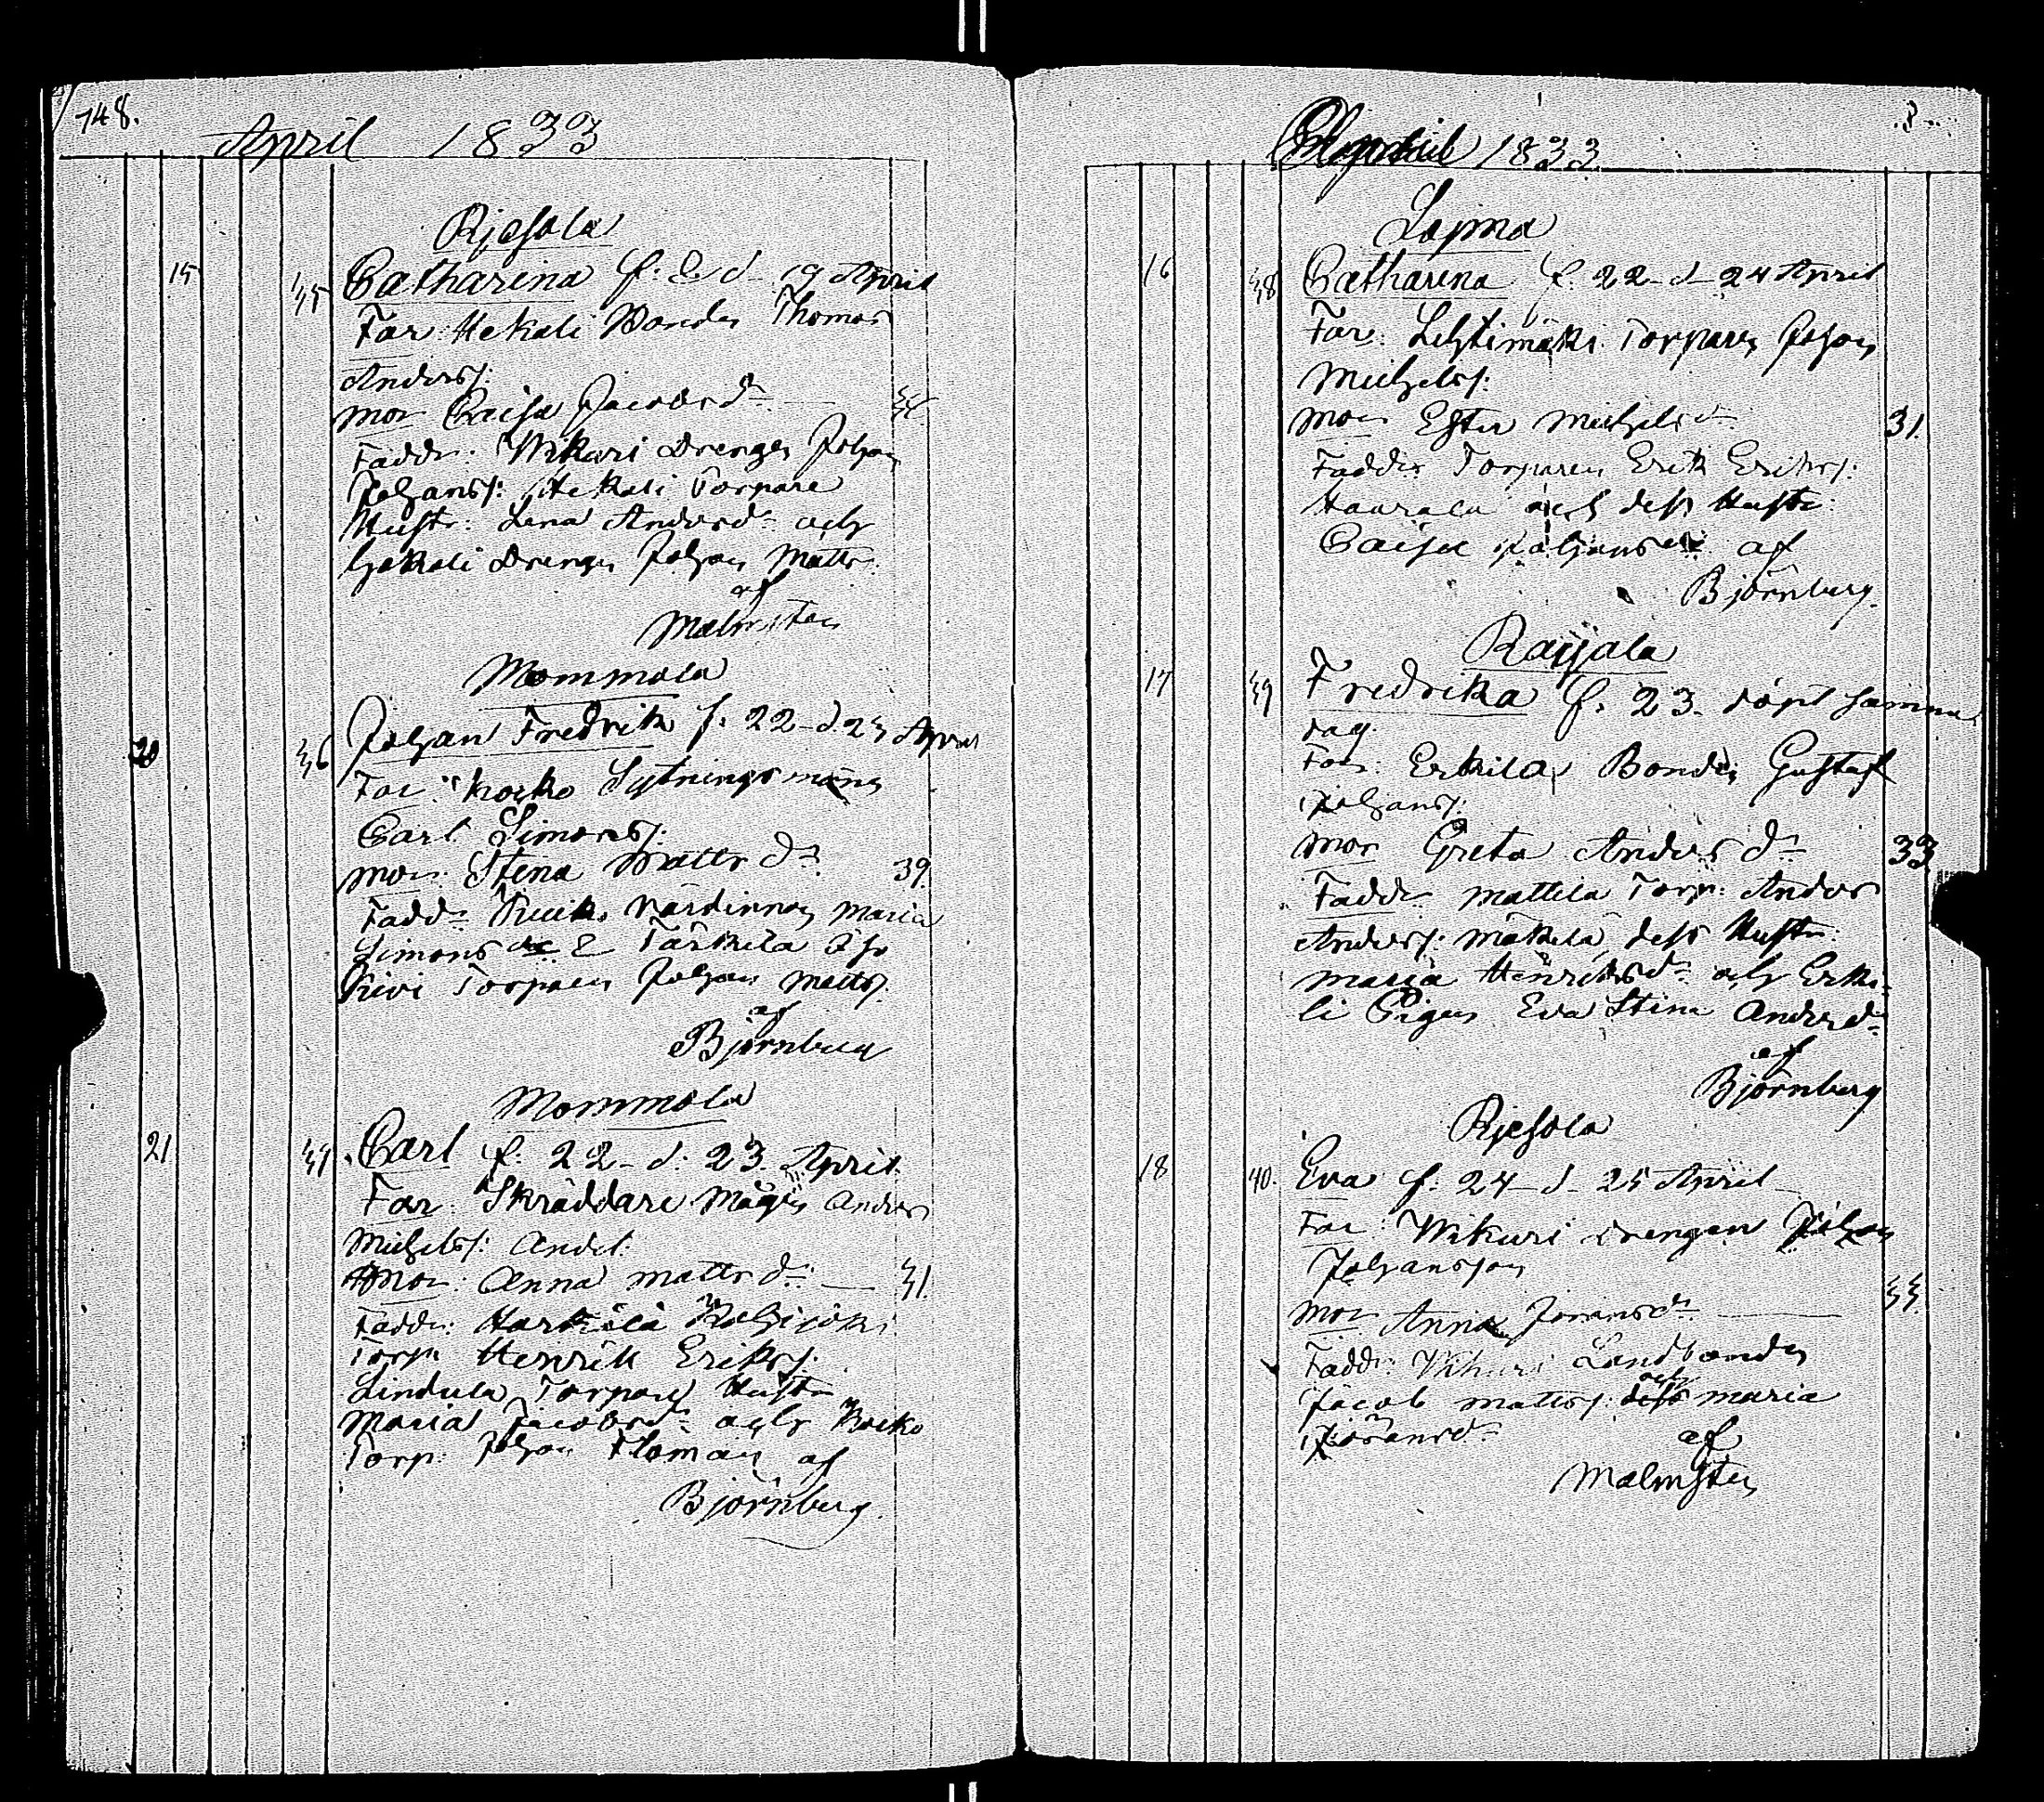 148.
April 1833
Rjesola
15 35 Catharina f. & d. 19 April
Far: Hekali Bonden Thomas
Anders:
Mor Caisa Jacobsdr 34
Fadd: Wikari Drengen Johan
Johans: Hekali Torpare
Hustr: Lena Andersdr och
Hekali Drengen Johan Matts:
af
Malmsten
Mommola
20 36 Johan Fredrik f. 22 d. 23 April
Far: Kocko Sytningsmans
Carl Simons:
Mor: Stena Mattsdr 39.
Fadd: värdinnan Maria
Simonsdr & Tärkilä
Kivi Torparen Johan Matts:
af
Björnberg
Mommola
21 37 Carl f. 22 d. 23. April
Far: Skräddare Mågen Anders
Michels:
Mor: Anna Mattsdr 31.
Fadd: Harkälä Kolsijoki
Torp: Henrik Eriks:
Lindula Torpare Hustr
Maria Jacobsdr och Kocko
Torp: Johan Floman af
Björnberg
April 1833
Lopma
16 38 Catharina f. 22 d 24 April
Far: Lehtimäki Torparen Johan
Michels:
Mor Ester Michelsdr 31.
Fadder Torparen Erik Eriks:
Haurala och dess Hustr:
Caisa Johansdr af
Björnberg
Raijala
17 39 Fredrika f. 23. döpt samma
dag.
Far: Erkilä Bonden Gustaf
Johans:
Mor Greta Andersdr 33
Fadd: Mattila Torp: Anders
Anders: Mäkelä, dess Hustr:
Maria Henriksdr och Erki-
li Pigan Eva Stina Andersdr
af
Björnberg
Rjesola
18 40. Eva f. 24 d. 25 April
Far: Wikuri drengen Johan
Johansson
Mor Anna Joransdr 33
Fadd: Vikuri Landbonden
Jacob Matts: och dess Maria
Göransdr af
Malmsten